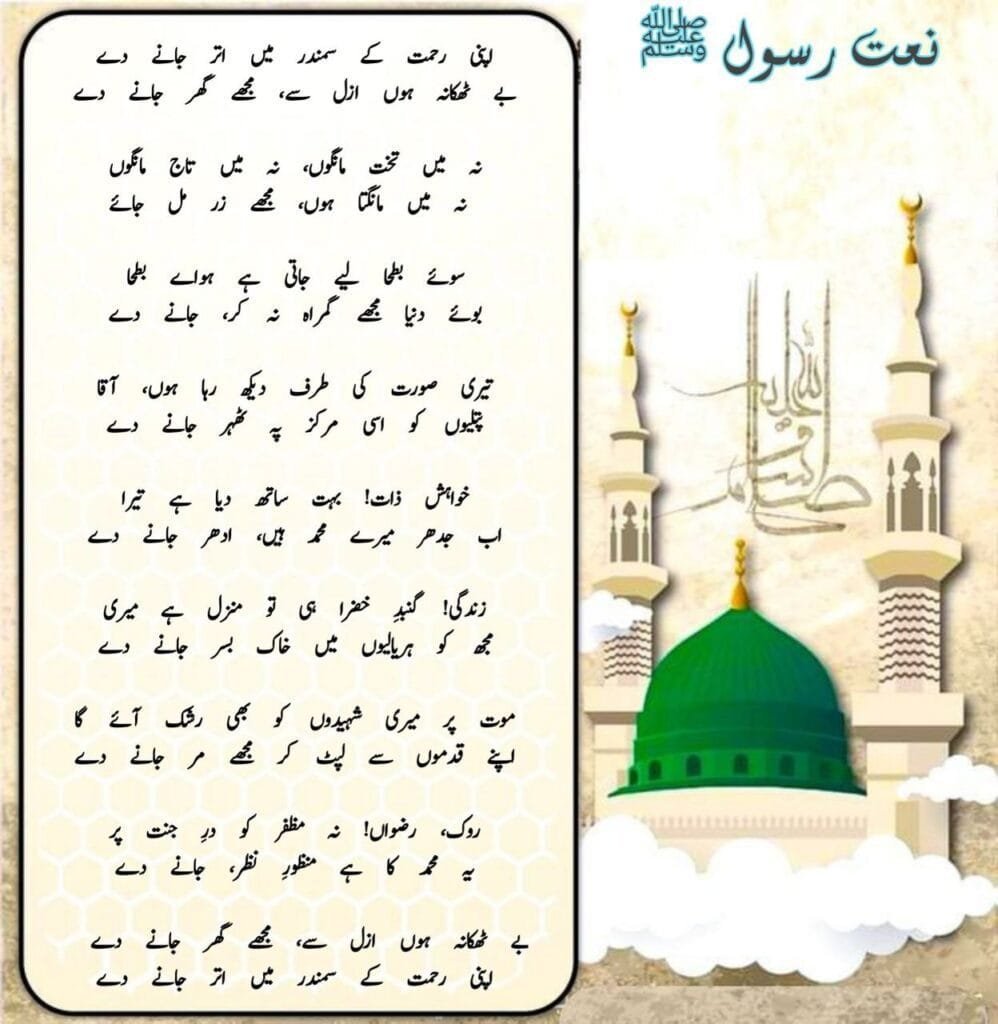 نعت رسول ﷺ
اپنی رحمت کے سمندر میں اتر جانے دے
بے ٹھکانہ ہوں ازل سے، مجھے گھر جانے دے
نہ میں تخت مانگوں، نہ میں تاج مانگوں
نہ میں مانگتا ہوں، مجھے زر مل جائے
سوئے بطحا لیے جاتی ہے ہواے بطحا
بوئے دنیا مجھے گمراہ نہ کر، جانے دے
تیری صورت کی طرف دیکھ رہا ہوں، آقا
پتلیوں کو اسی مرکز پہ ٹھہر جانے دے
خواہش ذات! بہت ساتھ دیا ہے تیرا
اب جدھر میرے محمد ہیں، ادھر جانے دے
زندگی! گنبدِ خضرا ہی تو منزل ہے میری
مجھ کو ہریالیوں میں خاک بسر جانے دے
موت پر میری شہیدوں کو بھی رشک آئے گا
اپنے قدموں سے لپٹ کر مجھے مر جانے دے
روک، رضواں! نہ مظفر کو درِ جنت پر
یہ محمد کا ہے منظورِ نظر، جانے دے
بے ٹھکانہ ہوں ازل سے، مجھے گھر جانے دے
اپنی رحمت کے سمندر میں اتر جانے دے
صلى الله عليه وسلم